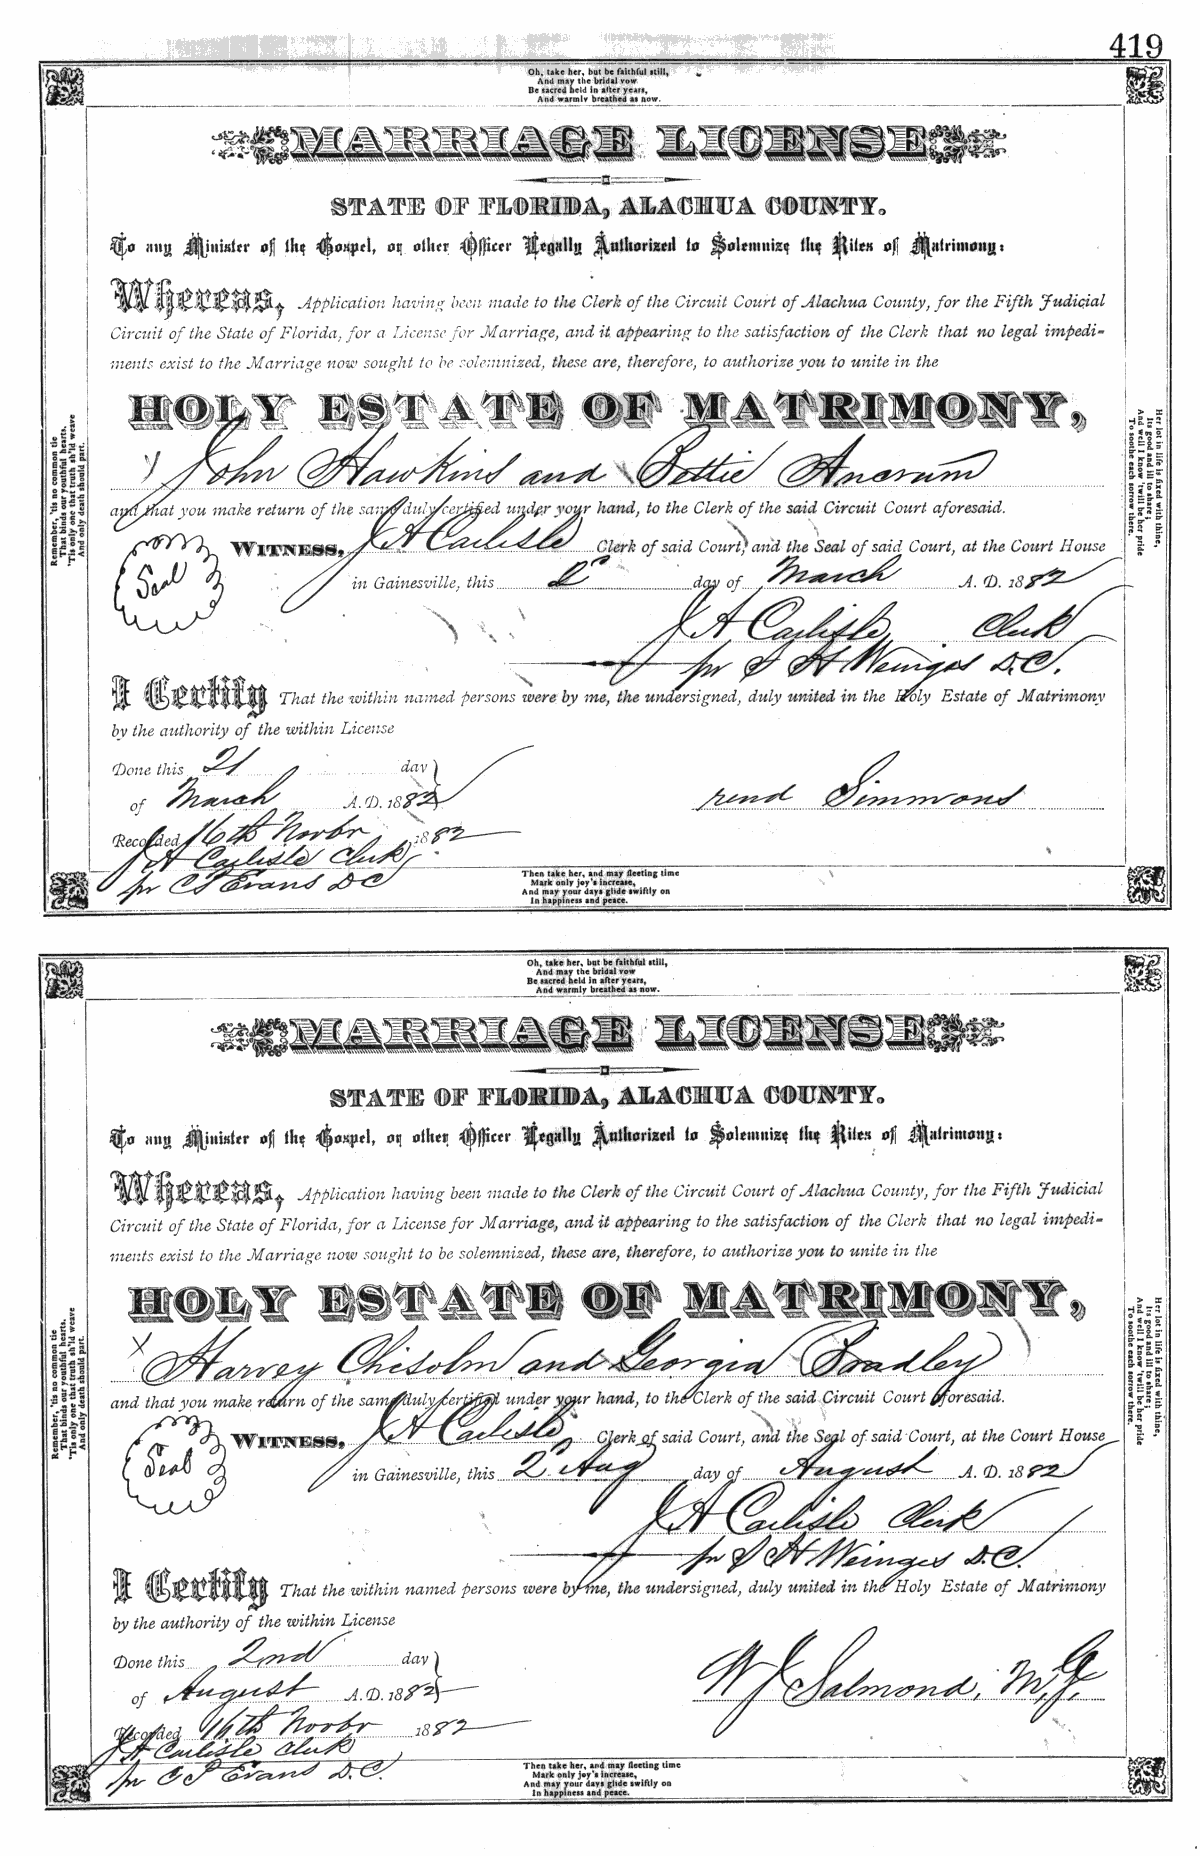 419
Oh, take her, but be faithful still,
And may the bridal vow
Be sacred held in after years,
And warmly breathed as now.
MARRIAGE LICENSE
STATE OF FLORIDA, ALACHUA COUNTY.
To any Minister of the Gospel, or other Officer Legally Authorized to Solemnize the Rites of Matrimony:
Whereas, Application having been made to the Clerk of the Circuit Court of Alachua County, for the Fifth Judicial
Circuit of the State of Florida, for a License for Marriage, and it appearing to the satisfaction of the Clerk that no legal impedi-
ments exist to the Marriage now sought to be solemnized, these are, therefore, to authorize you to unite in the
HOLY ESTATE OF MATRIMONY,
John Hawkins and Bettie Ancrum
and that you make return of the same duly certified under your hand, to the Clerk of the said Circuit Court aforesaid.
Seal
WITNESS, J A Carlisle Clerk of said Court, and the Seal of said Court, at the Court House
in Gainesville, this day of March A. D. 1882
J A Carlisle Clerk
pr S H Weinges D.C.
I Certify That the within named persons were by me, the undersigned, duly united in the Holy Estate of Matrimony
by the authority of the within License
Done this 21 day
of March A.D. 1882
rend Simmons
Recorded 16th Novbr 1882
J A Carlisle Clerk
pr C P Evans D C
Remember, 'tis no common tie
That binds our youthful hearts,
'Tis only one that truth sh'ld weave
And only death should part.
Her lot in life is fixed with thine,
Its good and ill to share;
And well I know 'twill be her pride
To soothe each sorrow there.
Then take her, and may fleeting time
Mark only joy's increase,
And may your days glide swiftly on
In happiness and peace.
Oh, take her, but be faithful still,
And may the bridal vow
Be sacred held in after years,
And warmly breathed as now.
MARRIAGE LICENSE
STATE OF FLORIDA, ALACHUA COUNTY.
To any Minister of the Gospel, or other Officer Legally Authorized to Solemnize the Rites of Matrimony:
Whereas, Application having been made to the Clerk of the Circuit Court of Alachua County, for the Fifth Judicial
Circuit of the State of Florida, for a License for Marriage, and it appearing to the satisfaction of the Clerk that no legal impedi-
ments exist to the Marriage now sought to be solemnized, these are, therefore, to authorize you to unite in the
HOLY ESTATE OF MATRIMONY,
X Harvey Chisolm and Georgia Bradley
and that you make return of the same duly certified under your hand, to the Clerk of the said Circuit Court aforesaid.
Seal
WITNESS, J A Carlisle Clerk of said Court, and the Seal of said Court, at the Court House
in Gainesville, this 2" Aug day of August A. D. 1882
J A Carlisle Clerk
pr S H Weinges D.C.
I Certify That the within named persons were by me, the undersigned, duly united in the Holy Estate of Matrimony
by the authority of the within License
Done this 2nd day
of August A.D. 1882
W J Salmond, M.G.
Recorded 16th Novbr 1882
J A Carlisle Clerk
pr C P Evans D.C.
Remember, 'tis no common tie
That binds our youthful hearts,
'Tis only one that truth sh'ld weave
And only death should part.
Her lot in life is fixed with thine,
Its good and ill to share;
And well I know 'twill be her pride
To soothe each sorrow there.
Then take her, and may fleeting time
Mark only joy's increase,
And may your days glide swiftly on
In happiness and peace.